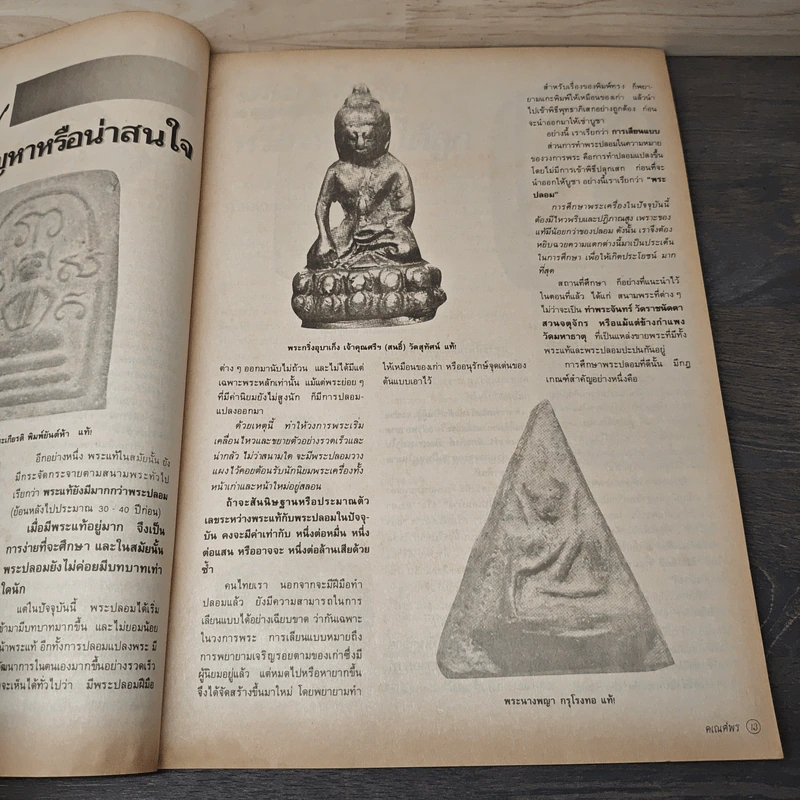 ญหาหรือน่าสนใจ
ะเกียรติ พิมพ์ยันต์ห้า แท้!
อีกอย่างหนึ่ง พระแท้ในสมัยนั้น ยัง
มีกระจัดกระจายตามสนามพระทั่วไป
เรียกว่า พระแท้ยังมีมากกว่าพระปลอม
(ย้อนหลังไปประมาณ 30 - 40 ปีก่อน)
เมื่อมีพระแท้อยู่มาก จึงเป็น
การง่ายที่จะศึกษา และในสมัยนั้น
พระปลอมยังไม่ค่อยมีบทบาทเท่า
ใดนัก
แต่ในปัจจุบันนี้ พระปลอมได้เริ่ม
ข้ามามีบทบาทมากขึ้น และไม่ยอมน้อย
น้าพระแท้ อีกทั้งการปลอมแปลงพระ มี
ัฒนาการในตนเองมากขึ้นอย่างรวดเร็ว
จะเห็นได้ทั่วไปว่า มีพระปลอมฝีมือ
พระกริ่งอุบาเก็ง เจ้าคุณศรีฯ (สนธิ์) วัดสุทัศน์ แท้!
ต่าง ๆ ออกมานับไม่ถ้วน และไม่ได้มีแต่
เฉพาะพระหลักเท่านั้น แม้แต่พระย่อย ๆ
ที่มีค่านิยมยังไม่สูงนัก ก็มีการปลอม-
แปลงออกมา
ด้วยเหตุนี้ ทำให้วงการพระเริ่ม
เคลื่อนไหวและขยายตัวอย่างรวดเร็วและ
น่ากลัว ไม่ว่าสนามใด จะมีพระปลอมวาง
แผงไว้คอยต้อนรับนักนิยมพระเครื่องทั้ง
หน้าเก่าและหน้าใหม่อยู่สลอน
ถ้าจะสันนิษฐานหรือประมาณตัว
เลขระหว่างพระแท้กับพระปลอมในปัจจุ-
บัน คงจะมีค่าเท่ากับ หนึ่งต่อหมื่น หนึ่ง
ต่อแสน หรืออาจจะ หนึ่งต่อล้านเสียด้วย
ซ้ำ
คนไทยเรา นอกจากจะมีฝีมือทำ
ปลอมแล้ว ยังมีความสามารถในการ
เลียนแบบได้อย่างเฉียบขาด ว่ากันเฉพาะ
ในวงการพระ การเลียนแบบหมายถึง
การพยายามเจริญรอยตามของเก่าซึ่งมี
ผู้นิยมอยู่แล้ว แต่หมดไปหรือหายากขึ้น
จึงได้จัดสร้างขึ้นมาใหม่ โดยพยายามทำ
ให้เหมือนของเก่า หรืออนุรักษ์จุดเด่นของ
ต้นแบบเอาไว้
สำหรับเรื่องของพิมพ์ทรง ก็พยา-
ยามแกะพิมพ์ให้เหมือนของเก่า แล้วนำ
ไปเข้าพิธีพุทธาภิเสกอย่างถูกต้อง ก่อน
จะนำออกมาให้เช่าบูชา
อย่างนี้ เราเรียกว่า การเลียนแบบ
ส่วนการทำพระปลอมในความหมาย
ของวงการพระ คือการทำปลอมแปลงขึ้น
โดยไม่มีการเข้าพิธีปลุกเสก ก่อนที่จะ
นำออกให้บูชา อย่างนี้เราเรียกว่า "พระ
ปลอม"
การศึกษาพระเครื่องในปัจจุบันนี้
ต้องมีไหวพริบและปฏิภาณสูง เพราะของ
แท้มีน้อยกว่าของปลอม ดังนั้น เราจึงต้อง
หยิบฉวยความแตกต่างนี้มาเป็นประเด็น
ในการศึกษา เพื่อให้เกิดประโยชน์ มาก
ที่สุด
สถานที่ศึกษา ก็อย่างที่แนะนำไว้
ในตอนที่แล้ว ได้แก่ สนามพระที่ต่าง ๆ
ไม่ว่าจะเป็น ท่าพระจันทร์ วัดราชนัดดา
สวนจตุจักร หรือแม้แต่ข้างกำแพง
วัดมหาธาตุ ที่เป็นแหล่งขายพระที่มีทั้ง
พระแท้และพระปลอมปะปนกันอยู่
การศึกษาพระปลอมที่ดีนั้น มีกฎ
เกณฑ์สำคัญอย่างหนึ่งคือ
พระนางพญา กรุโรงทอ แท้!
คเณศ์พร ๑๓